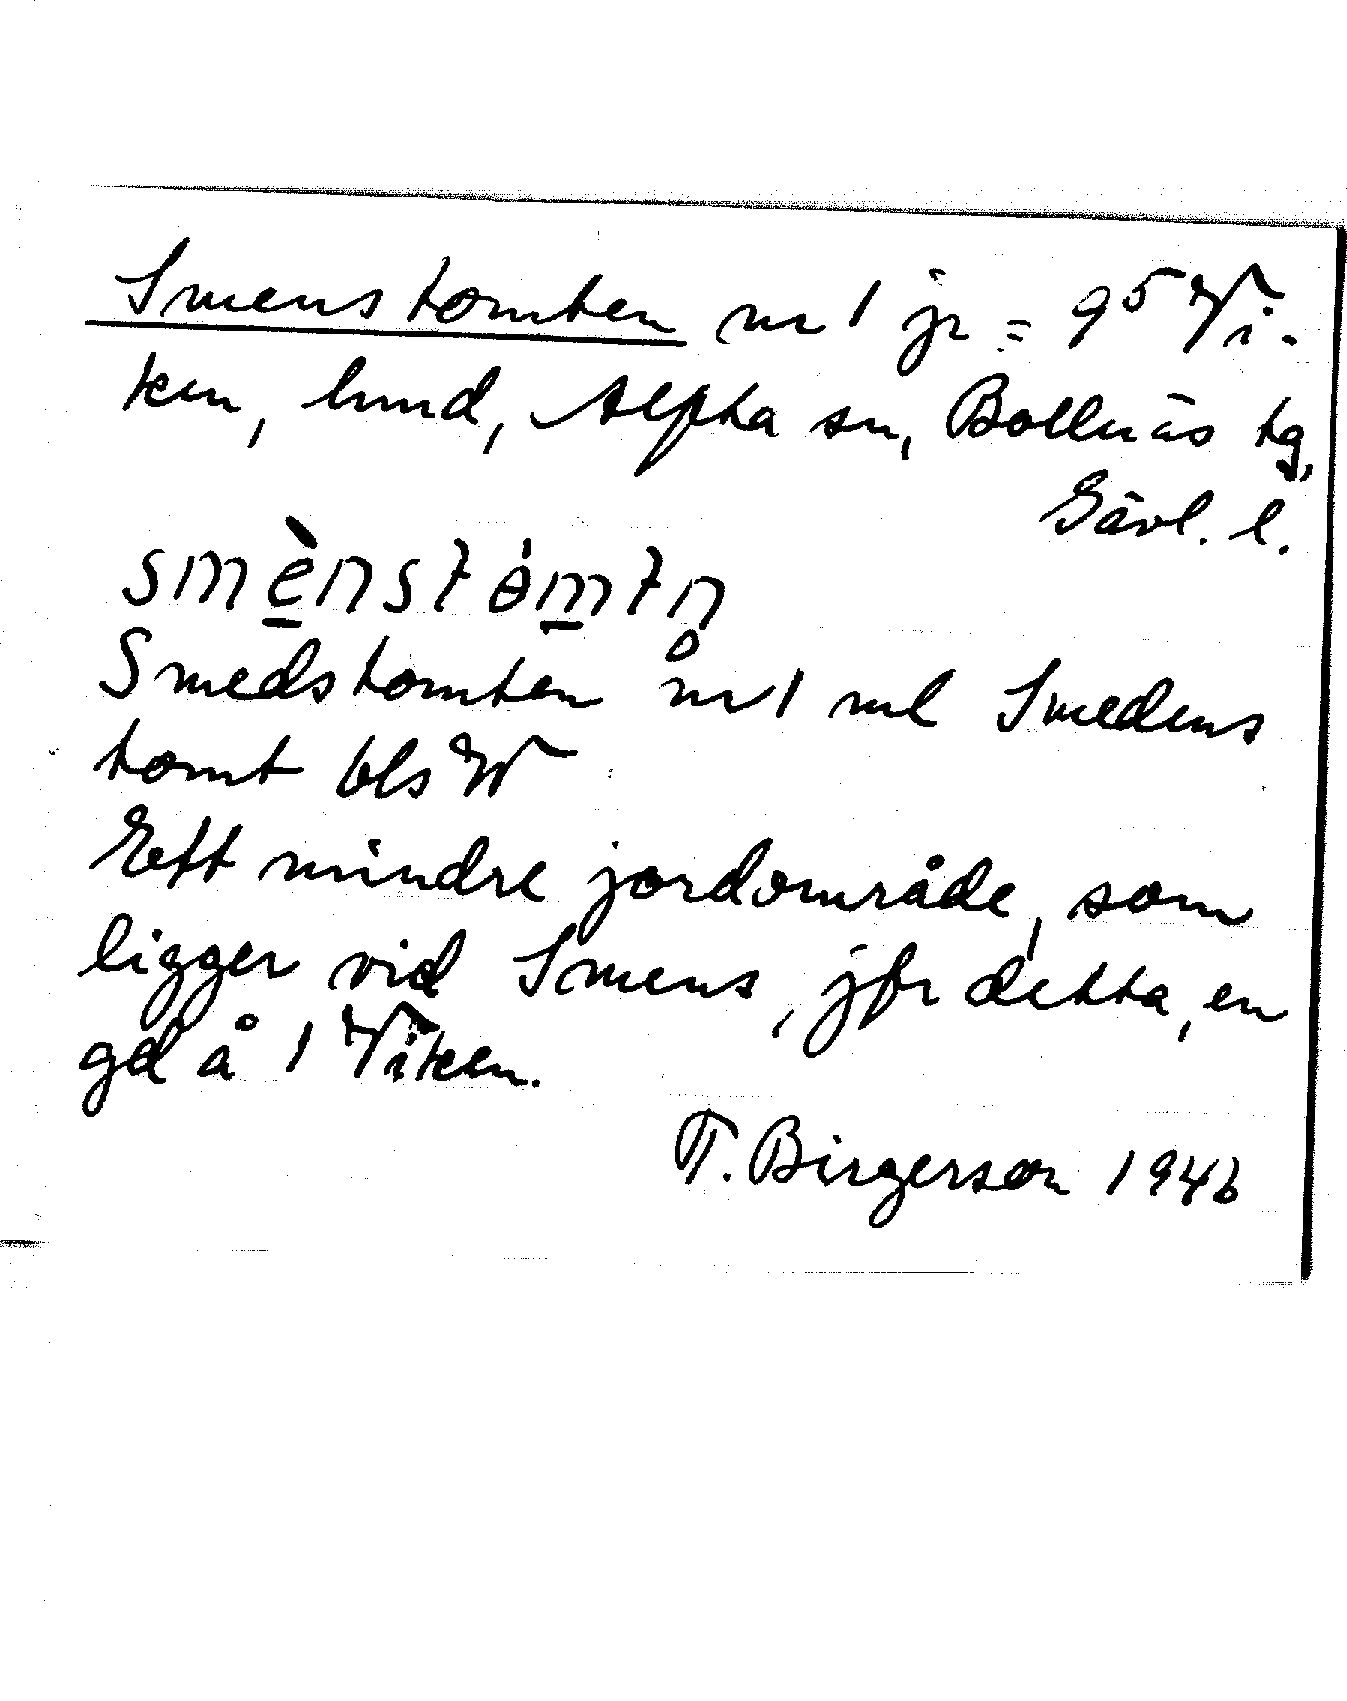 Smenstomten nr 1 jr = 9⁵ Vi-
ken, hmd, Alfta sn, Bollnäs tg,
Gävl. l.
smènstómtn̥
Smedstomten nr 1 ml Smedens
tomt bls W
Ett mindre jordområde, som
ligger vid Smens, jfr detta, en
gd å 1 Viken.
T. Birgerson 1946